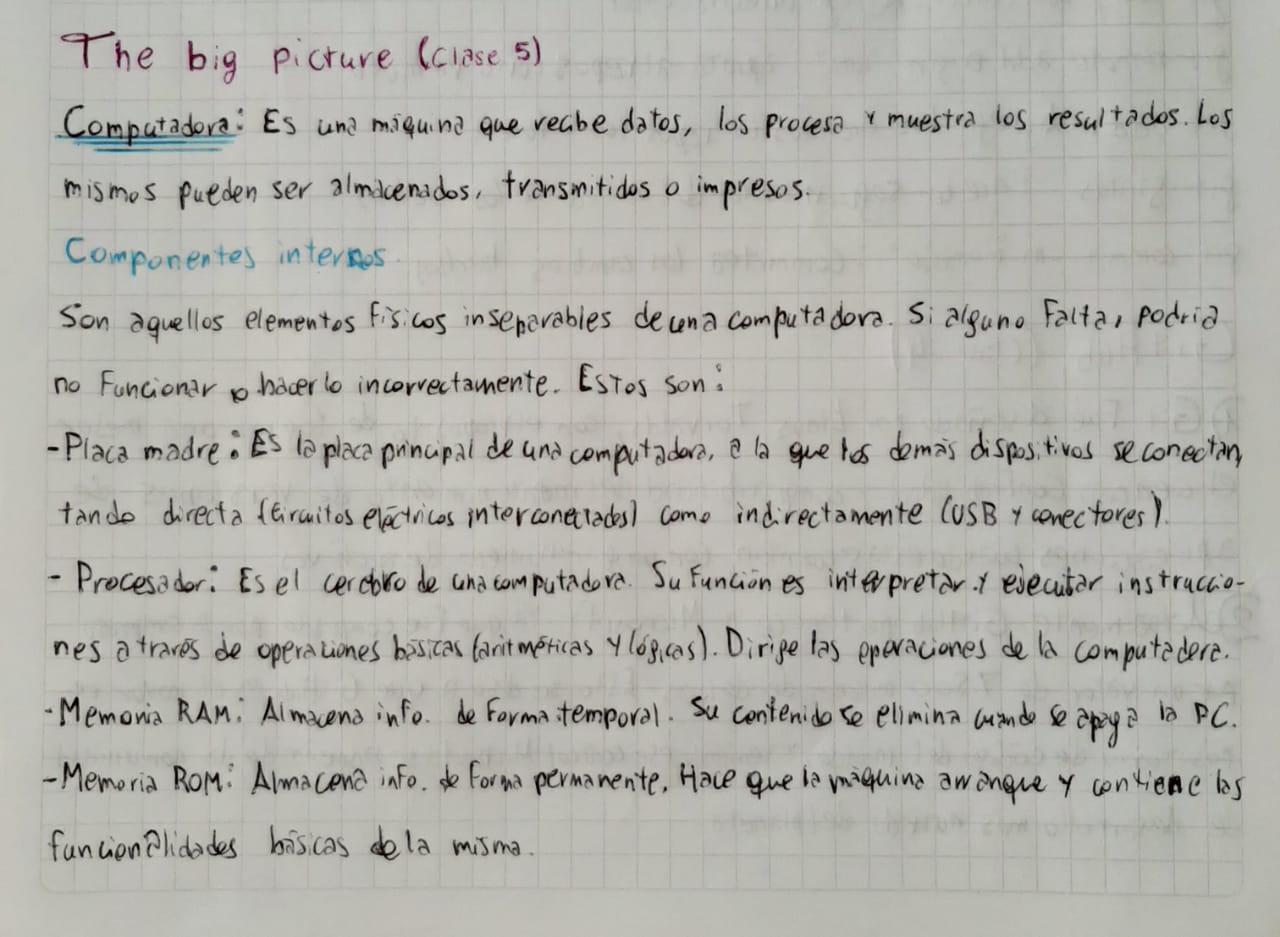 The big picture (clase 5)
Computadora: Es una máquina que recibe datos, los procesa y muestra los resultados. Los
mismos pueden ser almacenados, transmitidos o impresos.
Componentes internos.
Son aquellos elementos físicos inseparables de una computadora. Si alguno falta, podría
no funcionar o hacerlo incorrectamente. Estos son:
-Placa madre: Es la placa principal de una computadora, a la que los demás dispositivos se conectan,
tando directa (circuitos eléctricos interconectados) como indirectamente (USB y conectores).
- Procesador: Es el cerebro de una computadora. Su función es interpretar y ejecutar instruccio-
nes a través de operaciones básicas (aritméticas y lógicas). Dirige las operaciones de la computadora.
-Memoria RAM: Almacena info. de forma temporal. Su contenido se elimina cuando se apaga la PC.
-Memoria ROM: Almacena info. de forma permanente. Hace que la máquina arranque y contiene las
funcionalidades básicas de la misma.